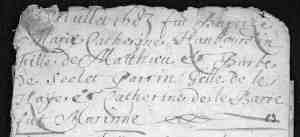 juillet chez fut Baptisée
Marie Catherine Hanbourdin
fille de Matthieu et Barbe
de Seclet Parrin Gille de les
Haye et Catherine desle Barre
fut Marinne